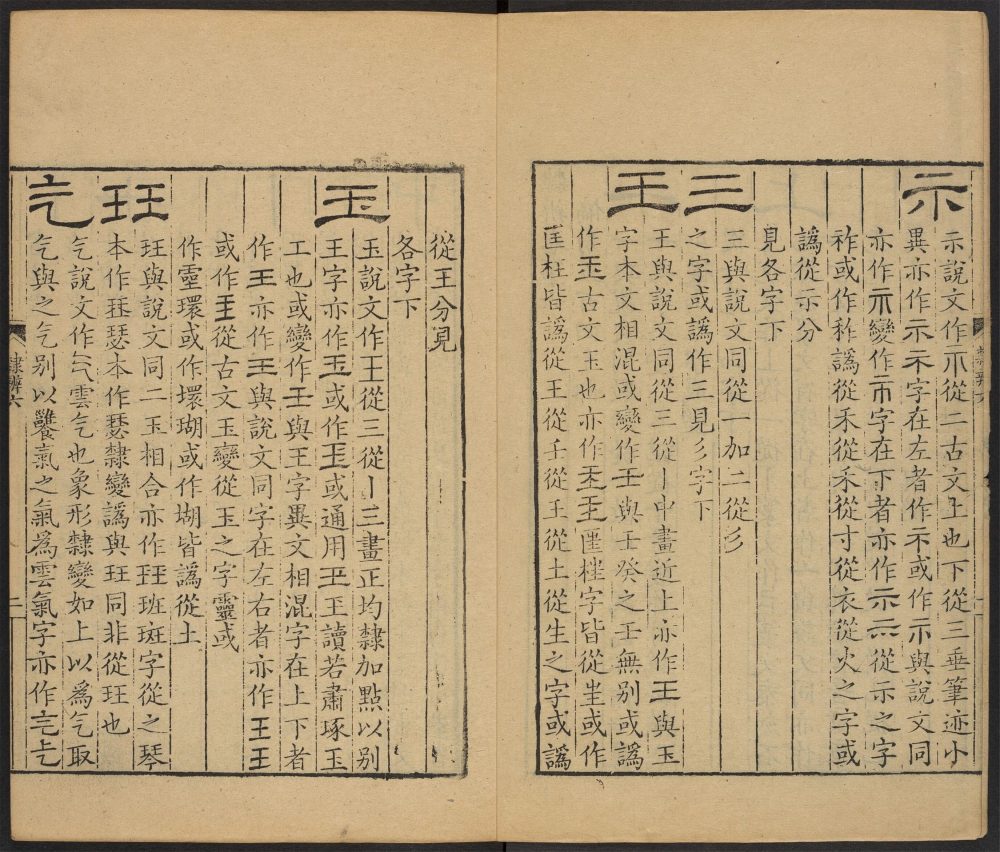 示 示說文作示從二古文上也下從三垂筆迹小
異亦作示示字在左者作不或作示與說文同
亦作示變作而字在下者亦作示示從示之字
祚或作秨譌從禾從禾從寸從衣從火之字或
譌從示分
見各字下
三 三與說文同從一加二從彡
之字或譌作三見彡字下
王 王與說文同從三從丨中畫近上亦作王與玉
字本文相混或變作壬與壬癸之壬無別或譌
作玉古文玉也亦作王字皆從𡉚或作
匡枉皆譌從王從壬從王從土從生之字或譌
從王分見
各字下
玉 玉說文作王從三從丨三畫正均隸加點以別
王字亦作玉或作玉或通用玉玉讀若肅琢玉
工也或變作王與王字異文相混字在上下者
作王亦作王與說文同字在左右者亦作王王
或作王從古文玉變從玉之字靈或
作靈環或作環瑚或作堋皆譌從土
玨 玨與說文同二玉相合亦作玨班斑字從之琴
本作珡瑟本作瑟隸變譌與玨同非從玨也
气 气說文作气雲气也象形隸變如上以爲气取
气與之气別以饔氣之氣爲雲氣字亦作气气
隸辨六